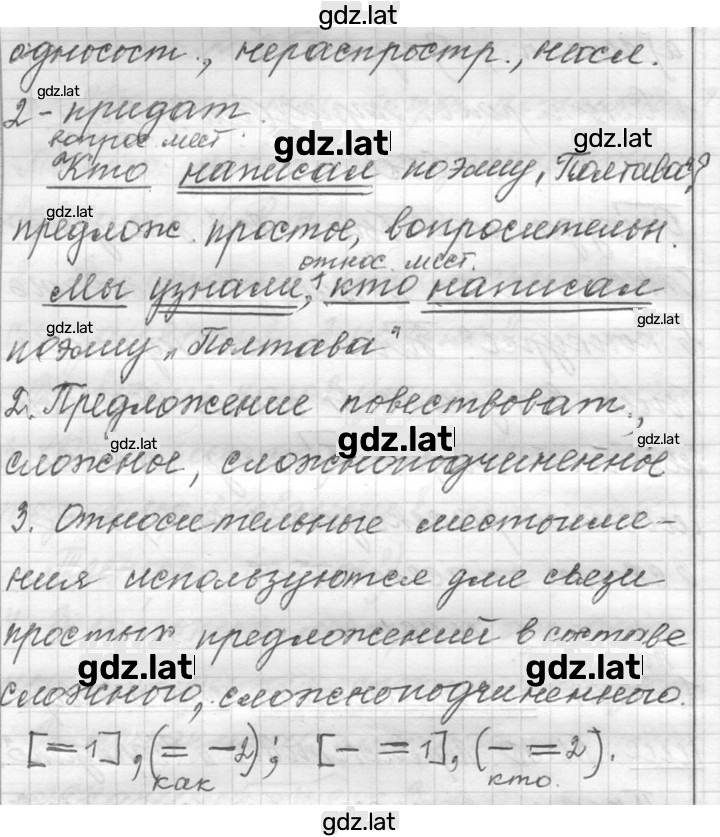 gdz.lat
односост., нераспростр., неосл.
gdz.lat
2 - придат.
вопрос. мест.
gdz.lat gdz.lat
Кто написал поэму „Полтава"?
gdz.lat
предлож. простое, вопросительн.
относ. мест.
Мы узнали,¹ кто написал
gdz.lat gdz.lat
поэму „Полтава"
2. Предложение повествоват.,
gdz.lat gdz.lat gdz.lat
сложное, сложноподчиненное
3. Относительные местоиме-
ния используются для связи
простых предложений в составе
gdz.lat gdz.lat
сложного, сложноподчиненного.
[= 1], (= - 2); [- = 1], (- = 2).
как кто.
gdz.lat